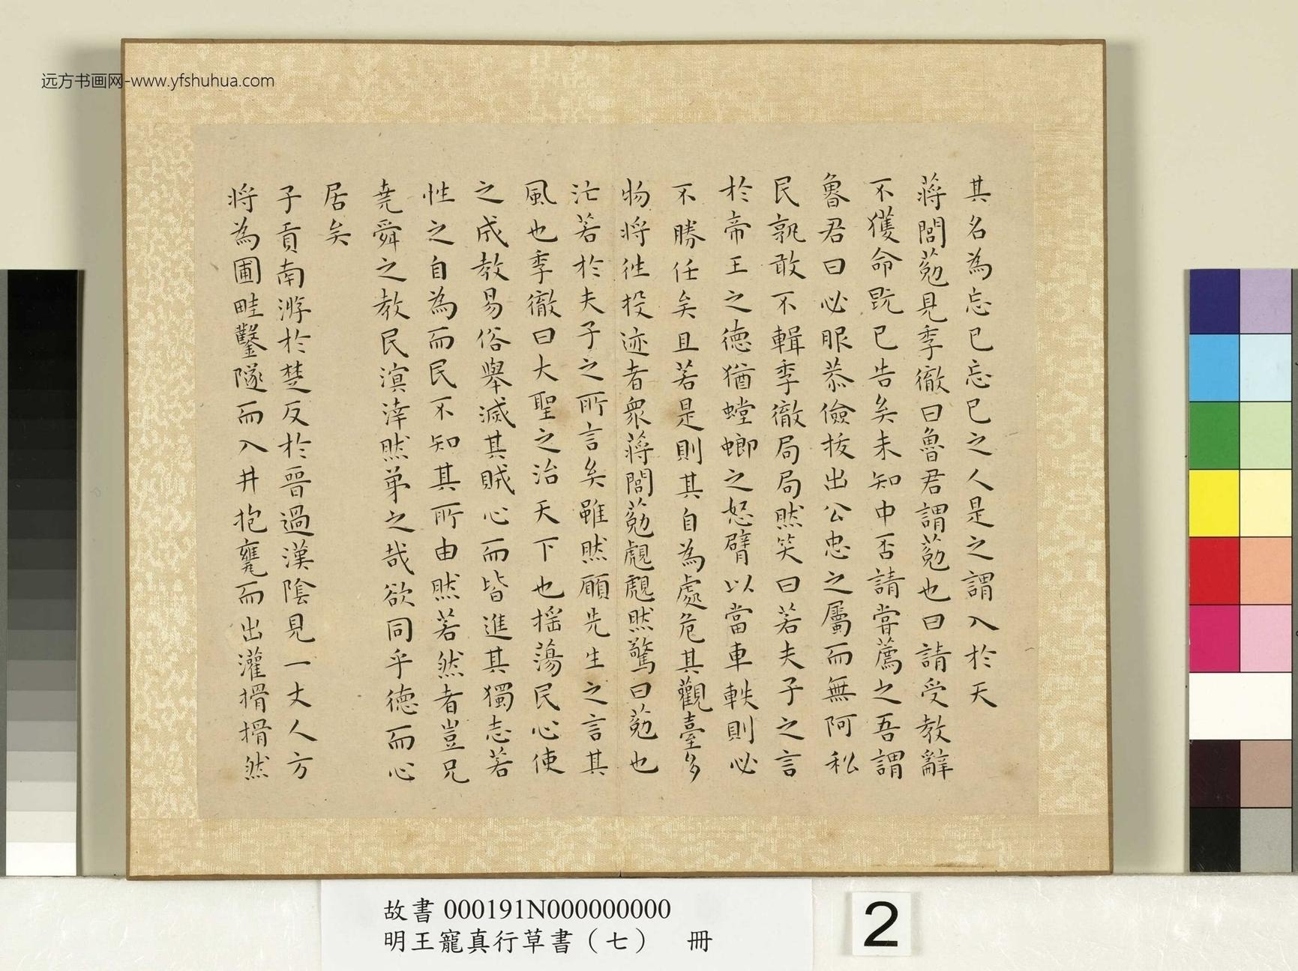 远方书画网-www.yfshuhua.com
其名為忘己忘己之人是之謂入於天
蔣閭葂見季徹曰魯君謂葂也曰請受教辭
不獲命既已告矣未知中否請嘗薦之吾謂
魯君曰必服恭儉拔出公忠之屬而無阿私
民孰敢不輯季徹局局然笑曰若夫子之言
於帝王之德猶螳螂之怒臂以當車軼則必
不勝任矣且若是則其自為處危其觀臺多
物將往投迹者眾蔣閭葂覤覤然驚曰葂也
汒若於夫子之所言矣雖然願先生之言其
風也季徹曰大聖之治天下也搖蕩民心使
之成教易俗舉滅其賊心而皆進其獨志若
性之自為而民不知其所由然若然者豈兄
堯舜之教民溟涬然弟之哉欲同乎德而心
居矣
子貢南游於楚反於晉過漢陰見一丈人方
將為圃畦鑿隧而入井抱甕而出灌搰搰然
故書 000191N000000000
明王寵真行草書（七） 冊
2